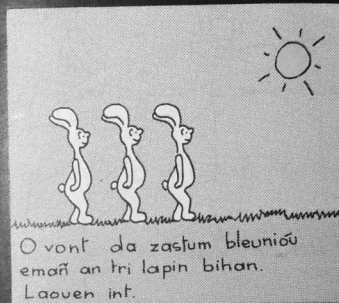 O vont da zastum bleuniou
emañ an tri lapin bihan.
Laouen int.